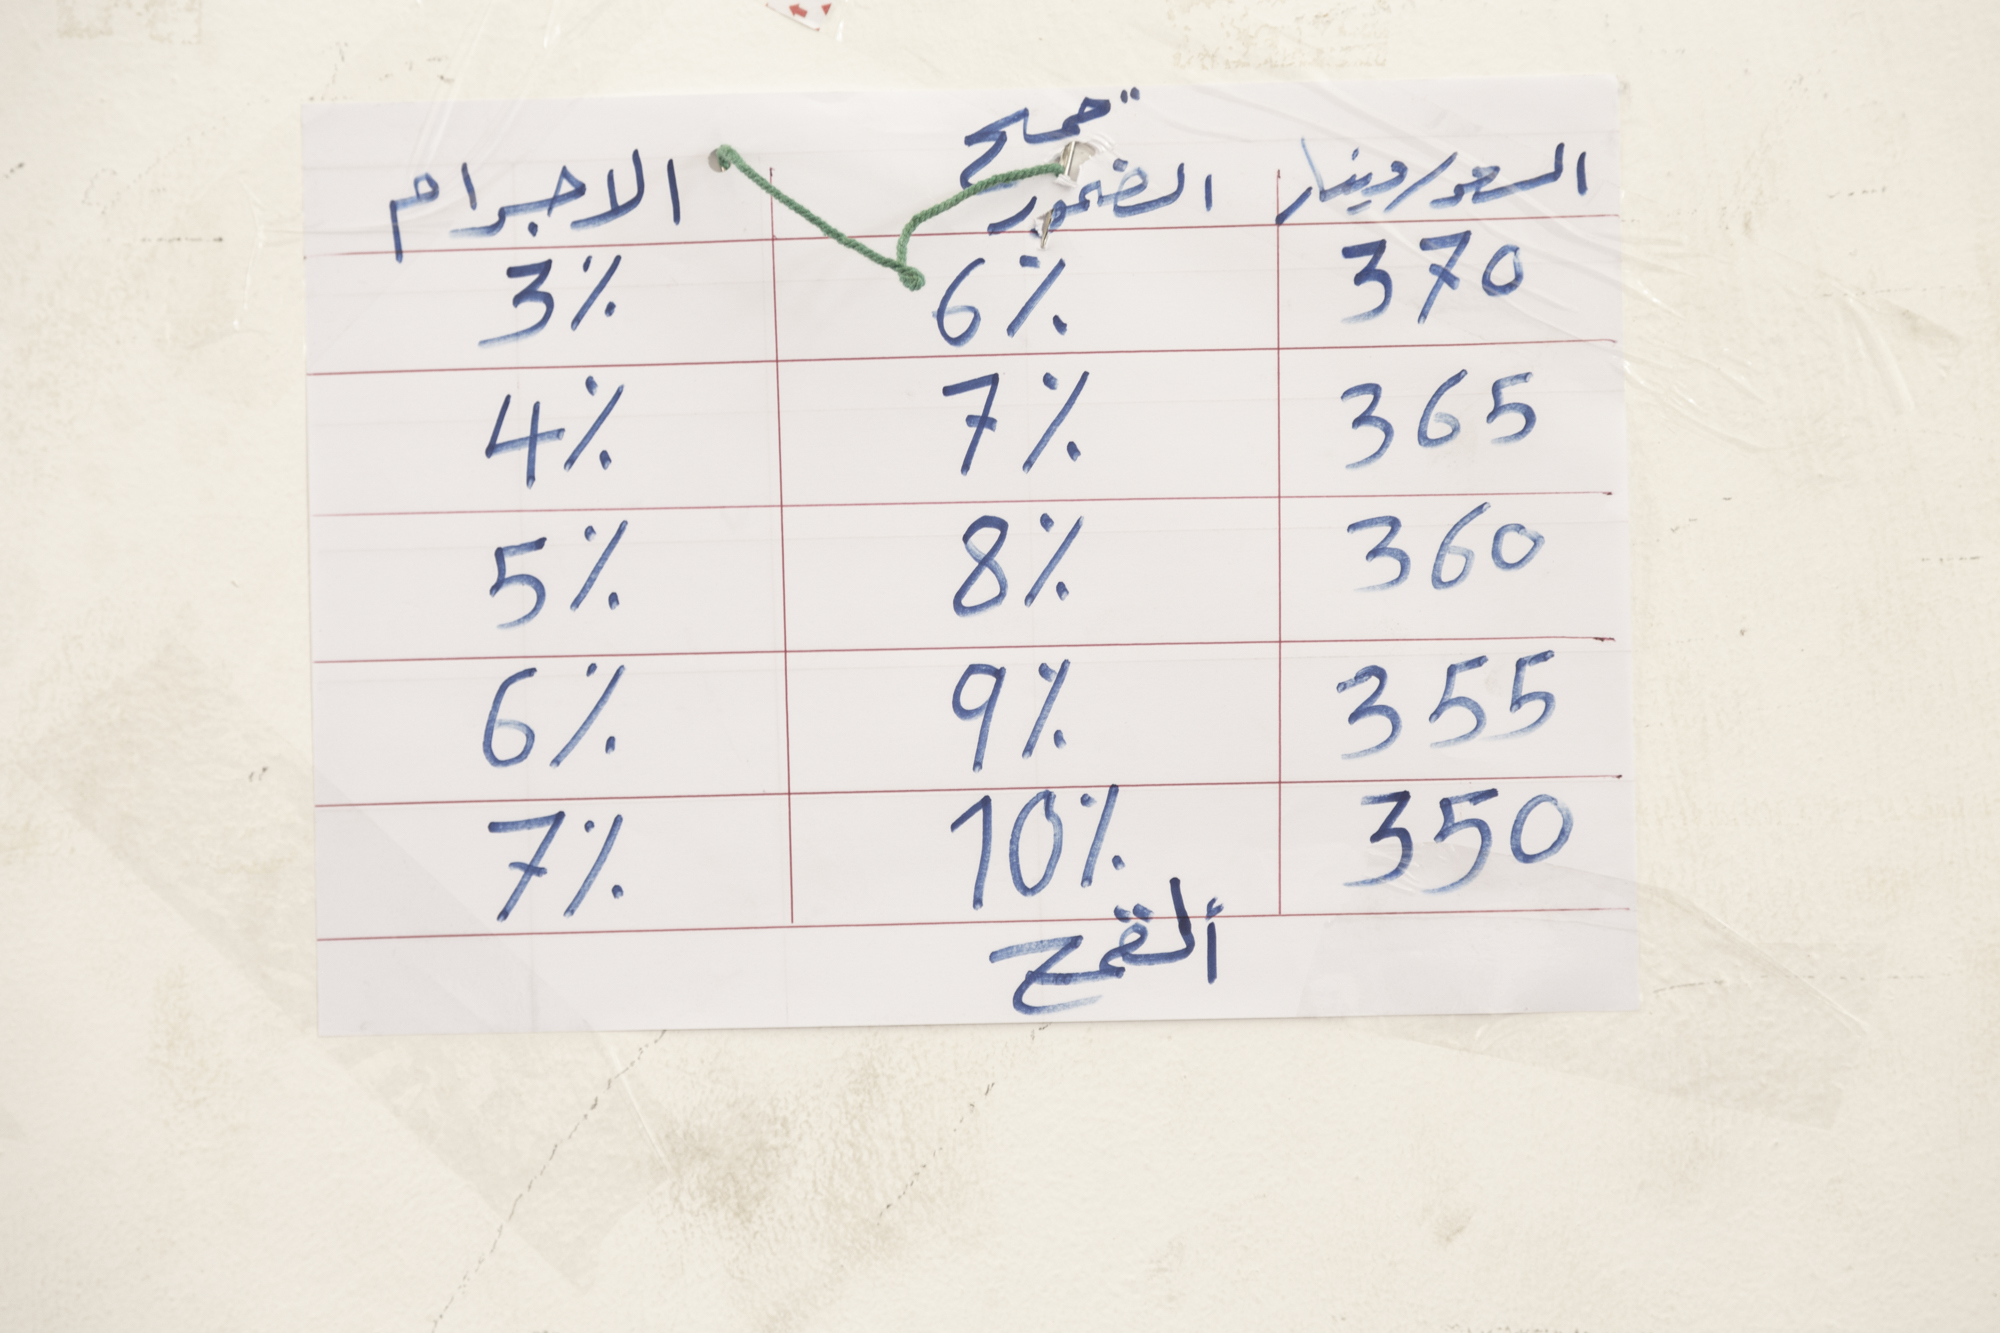 قمح
السعر/دينار الضمور الاجرام
370 6% 3%
365 7% 4%
360 8% 5%
355 9% 6%
350 10% 7%
ألقمح